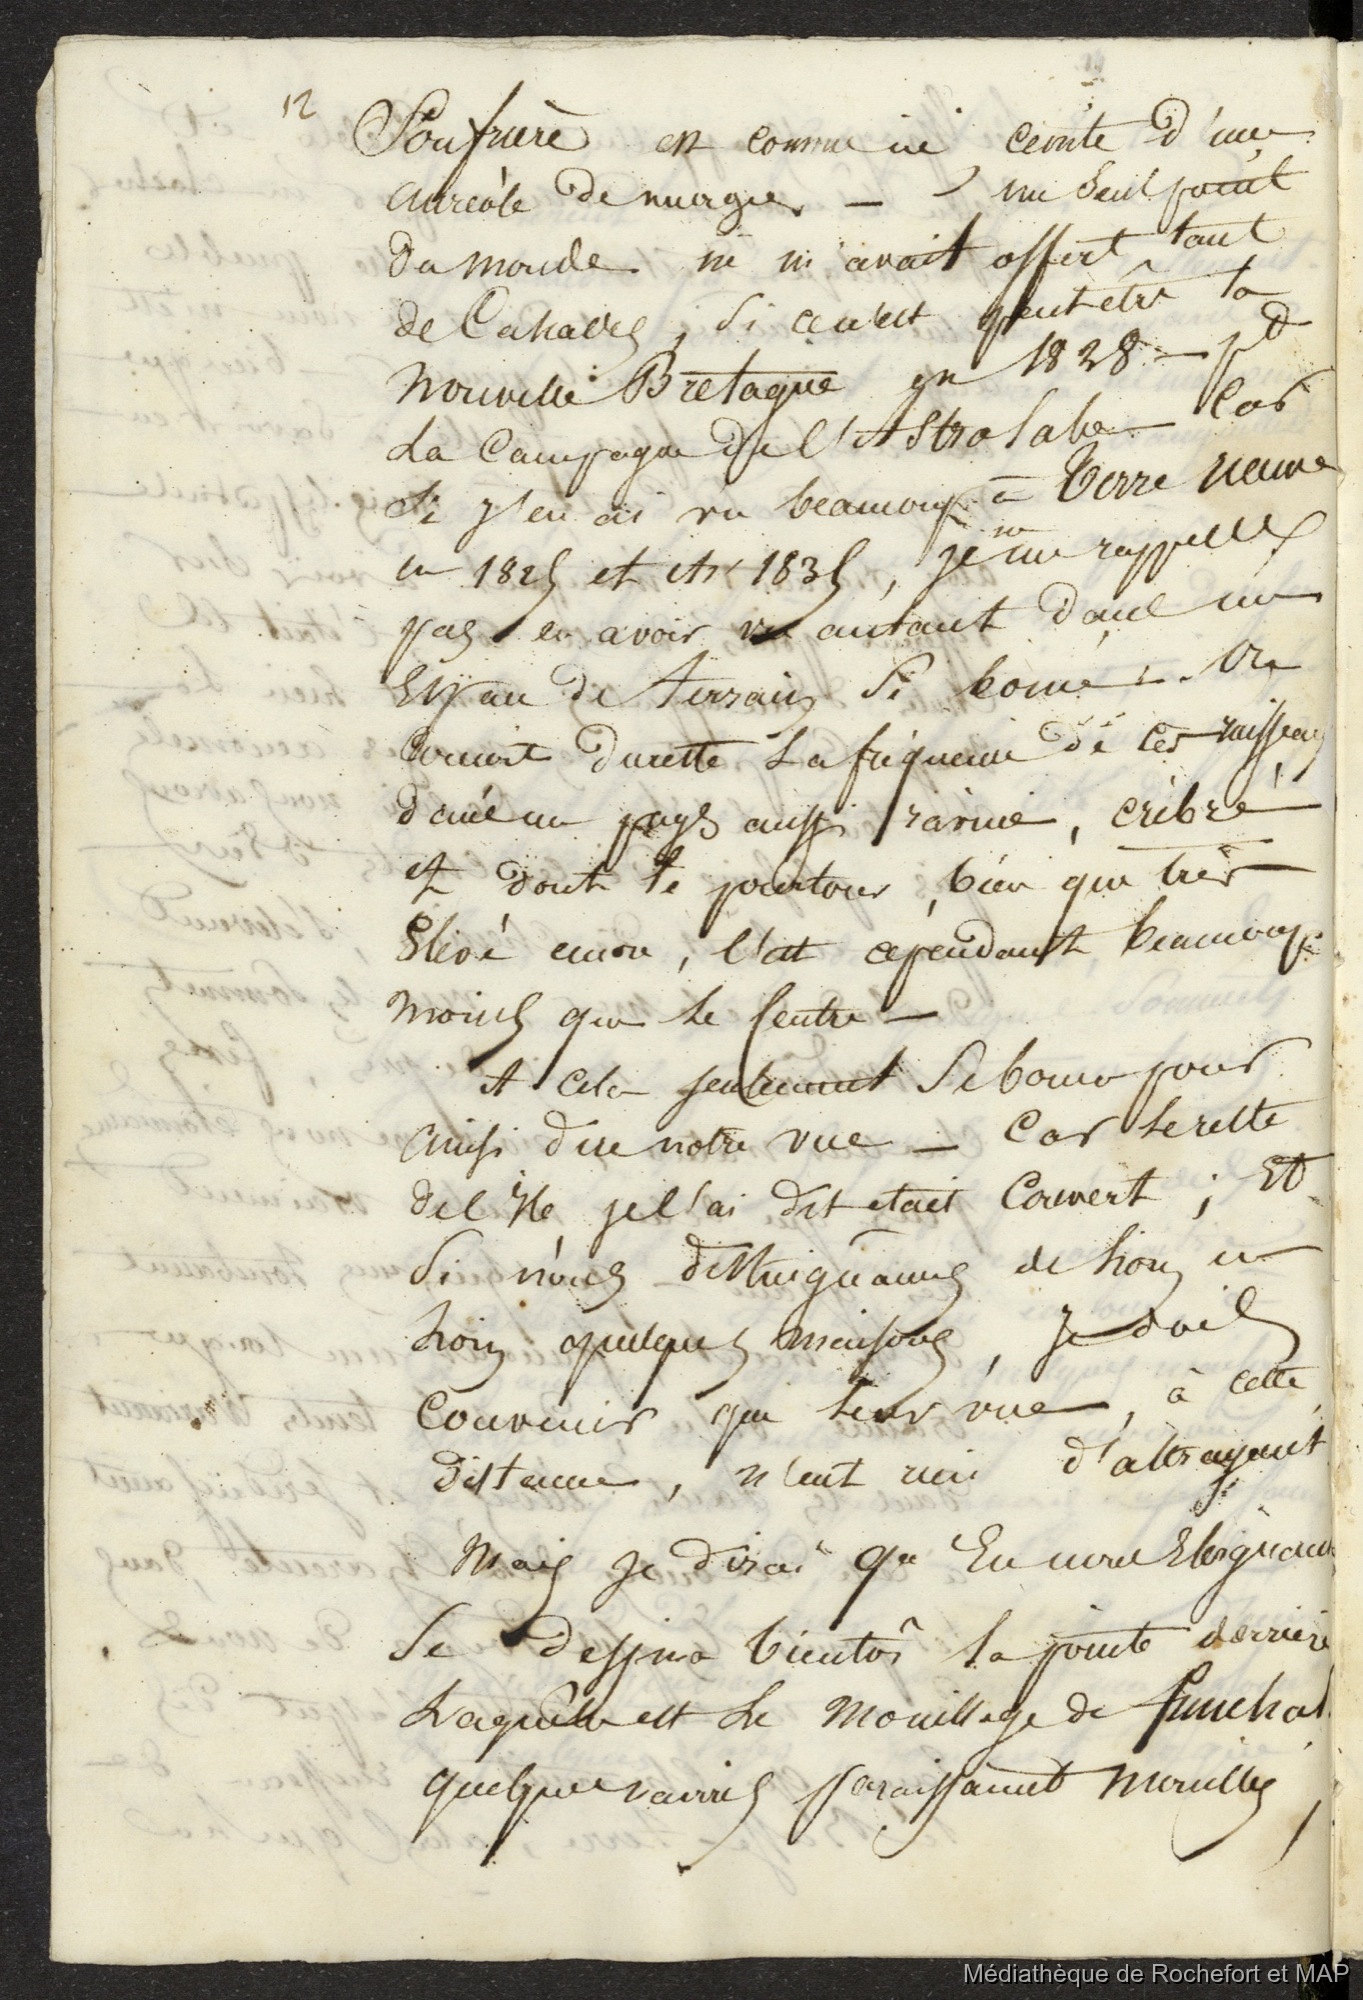 12
Soufrière est comme ici ceinte d'une
auréole de nuages — un seul point
du monde ne m'avait offert tant
de Cascades, si ce n'est peut être la
Nouvelle Bretagne en 1828 — pd
La Campagne de l'Astrolabe — Car
Si j'en ai vu beaucoup à Terre neuve
en 182 et 183, je ne me rappelle
pas en avoir vu autant dans un
Espace de terrain si borné. On
conçoit du reste la fréquence de ces ruisseaux
dans un pays aussi raviné, cribré
et dont le pourtour, bien que très
Elevé encore, l'est cependant beaucoup
moins que le Centre —
A cela seulement se borna pour
ainsi dire notre vue — Car le reste
de l'Ile je l'ai dit etait Couvert ; Et
Si nous distinguâmes de loin en
loin quelques maisons, je dois
Convenir que leur vue, à cette
distance, n'eut rien d'attrayant
Mais je dirai qu'En nous Eloignant
Se dessina bientôt la pointe derrière
Laquelle est le Mouillage de funchal.
quelques navires paraissaient mouillés,
Médiathèque de Rochefort et MAP